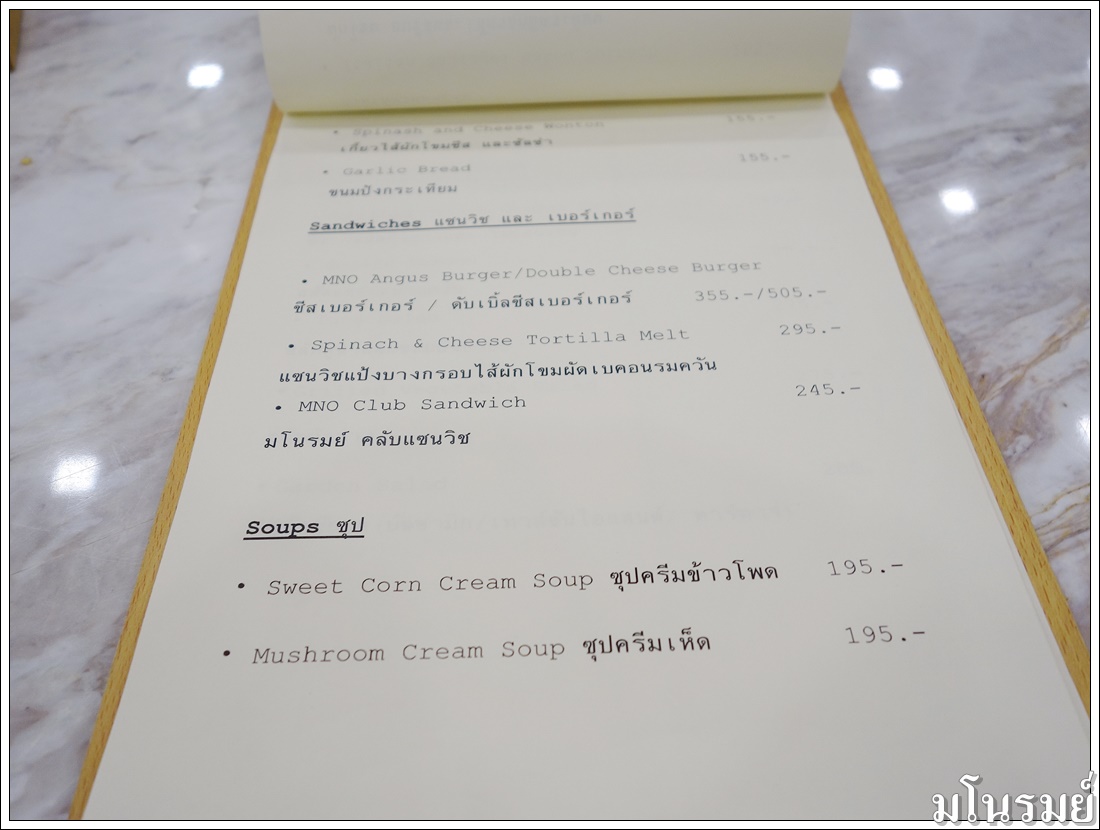 • Spinash and Cheese Wonton 155.-
เกี๊ยวไส้ผักโขมชีส และซัลซ่า
• Garlic Bread 155.-
ขนมปังกระเทียม
Sandwiches แซนวิช และ เบอร์เกอร์
• MNO Angus Burger/Double Cheese Burger
ชีสเบอร์เกอร์ / ดับเบิ้ลชีสเบอร์เกอร์ 355.-/505.-
• Spinach & Cheese Tortilla Melt 295.-
แซนวิชแป้งบางกรอบไส้ผักโขมผัดเบคอนรมควัน
• MNO Club Sandwich 245.-
มโนรมย์ คลับแซนวิช
Soups ซุป
• Sweet Corn Cream Soup ซุปครีมข้าวโพด 195.-
• Mushroom Cream Soup ซุปครีมเห็ด 195.-
มโนรมย์